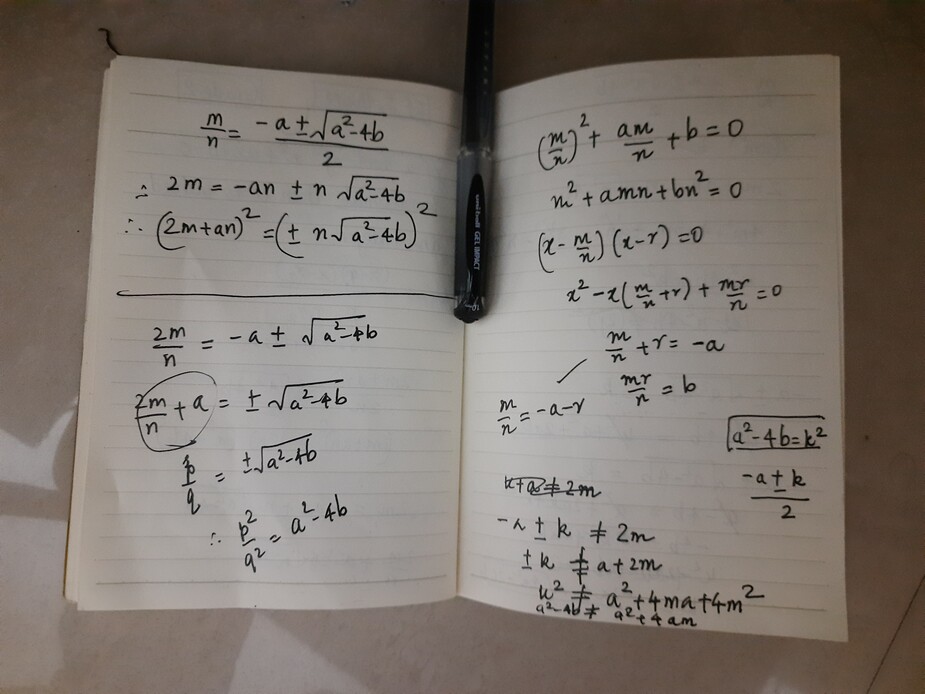 m/n = (-a ± √(a²-4b))/2
∴ 2m = -an ± n √(a²-4b)
∴ (2m+an)² = (± n√(a²-4b))²
2m/n = -a ± √(a²-4b)
2m/n + a = ± √(a²-4b)
p/q = ±√(a²-4b)
∴ p²/q² = a²-4b
uni-ball GEL IMPACT
(m/n)² + am/n + b = 0
m² + amn + bn² = 0
(x - m/n)(x-r) = 0
x² - x(m/n + r) + mr/n = 0
m/n + r = -a
mr/n = b
m/n = -a-r
a²-4b = k²
(-a ± k)/2
-a ± k ≠ 2m
± k ≠ a+2m
k² ≠ a²+4ma+4m²
a²-4b ≠ a²+4am